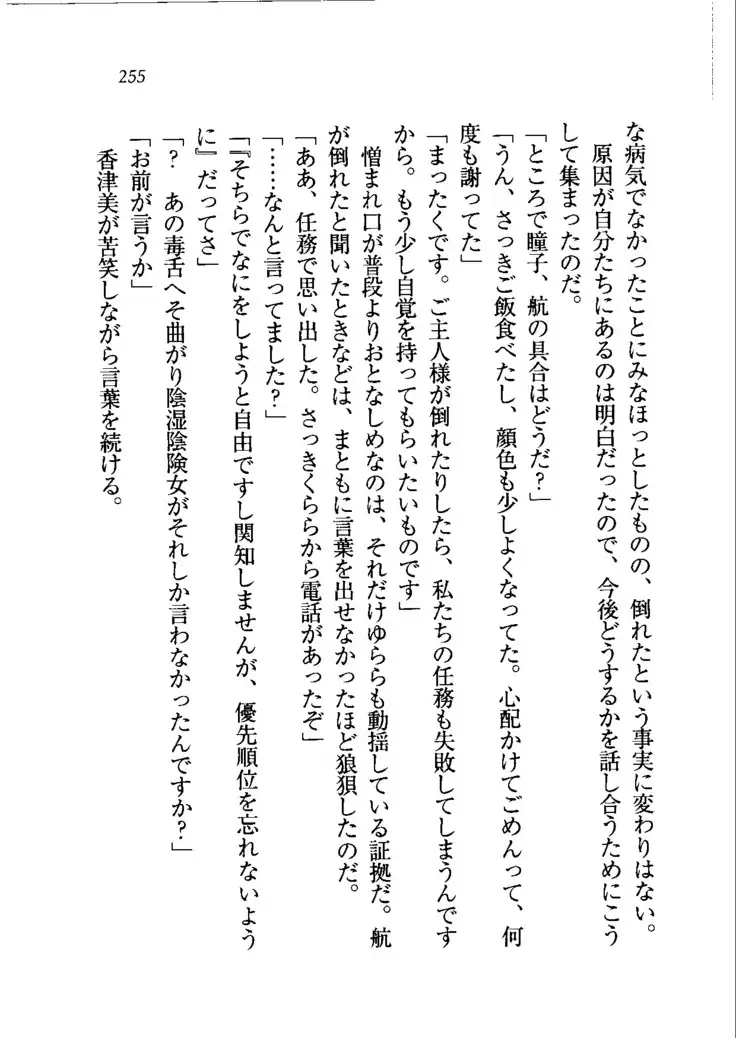 255
な病気でなかったことにみなほっとしたものの、倒れたという事実に変わりはない。
　原因が自分たちにあるのは明白だったので、今後どうするかを話し合うためにこう
して集まったのだ。
「ところで瞳子、航の具合はどうだ？」
「うん、さっきご飯食べたし、顔色も少しよくなってた。心配かけてごめんって、何
度も謝ってた」
「まったくです。ご主人様が倒れたりしたら、私たちの任務も失敗してしまうんです
から。もう少し自覚を持ってもらいたいものです」
　憎まれ口が普段よりおとなしめなのは、それだけゆららも動揺している証拠だ。航
が倒れたと聞いたときなどは、まともに言葉を出せなかったほど狼狽したのだ。
「ああ、任務で思い出した。さっきくららから電話があったぞ」
「……なんと言ってました？」
「『そちらでなにをしようと自由ですし関知しませんが、優先順位を忘れないよう
に』だってさ」
「？　あの毒舌へそ曲がり陰湿陰険女がそれしか言わなかったんですか？」
「お前が言うか」
　香津美が苦笑しながら言葉を続ける。